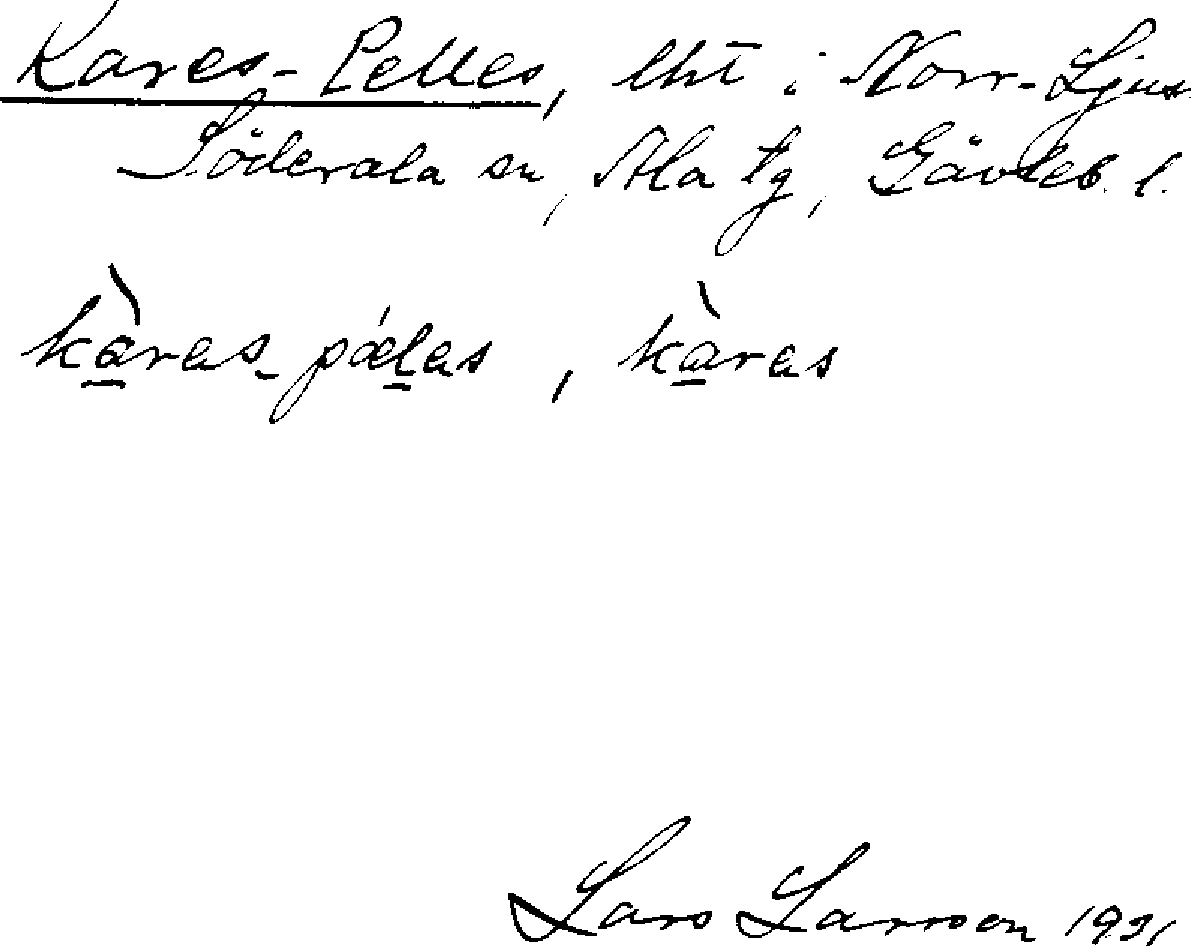 Kares-Pelles, lht i Norr-Ljus
Söderala sn, Ala tg, Gävleb. l.
kàras-pǽlas, kàras
Lars Larsson 1931